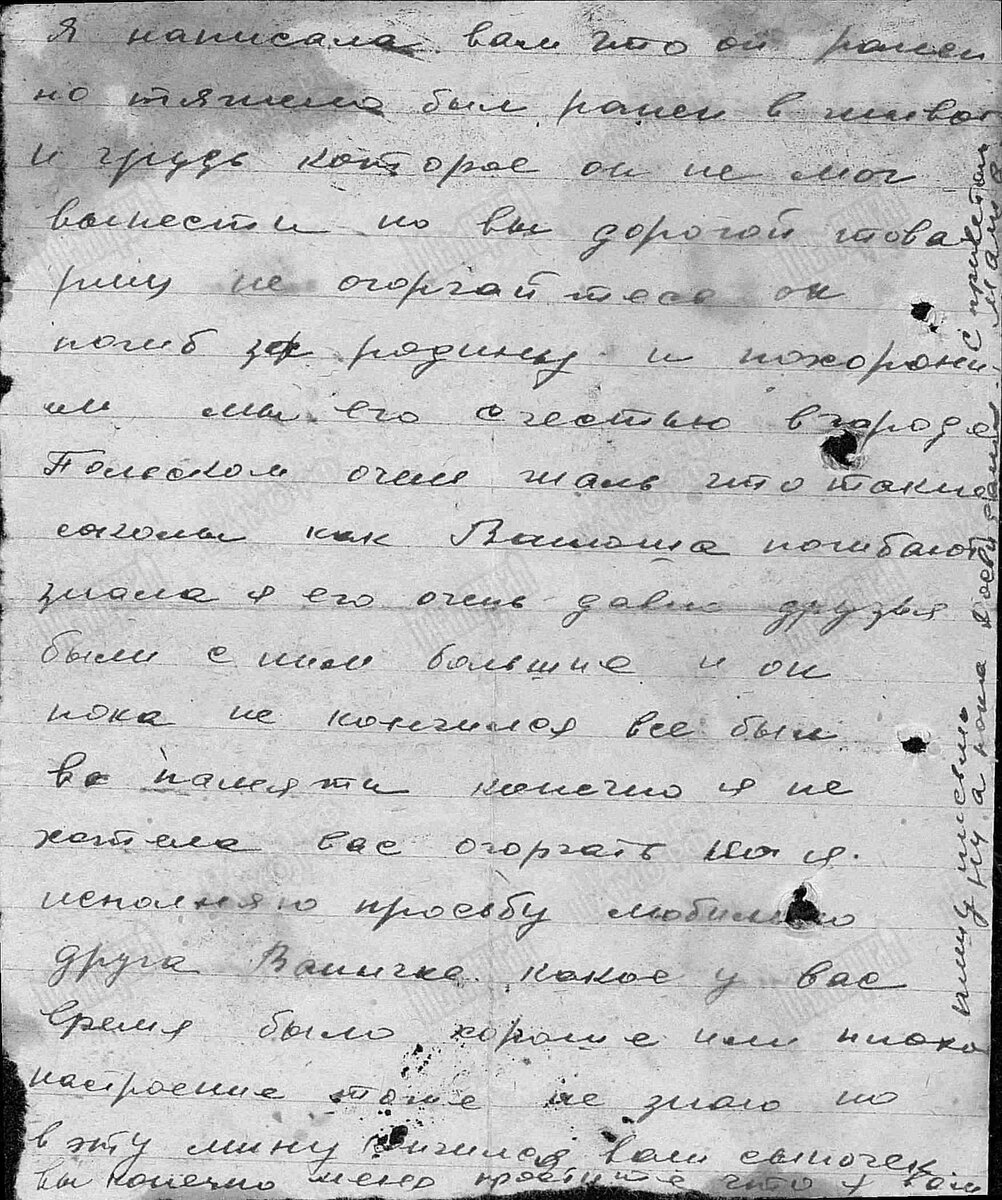 Я написала вам что он ранен
но тяжело был ранен в живот
и грудь которое он не мог
вынести но вы дорогой това
рищ не огоргайтесь он
погиб за родину и похорони
ли мы его с честью в городе
Польском очень жаль что такие
соколы как Ванюша погибают
знала я его очень давно друзья
были с ним большие и он
пока не кончился все был
в памяти конечно я не
хотела вас огоргать но я
исполняю просьбу любимого
друга Ванички какое у вас
время было хороше или плохо
настроение тоже не знаю но
в эту мину кончился ваш сыночек
вы конечно меня простите что я вам
пишу письмо
ну а пока досвидания
с приветом